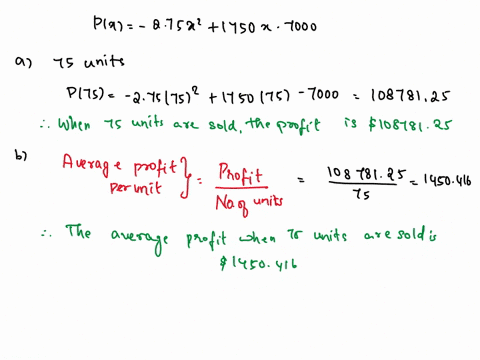 P(x) = - 2.75x² + 1750 x - 7000
a) 75 units
P(75) = -2.75(75)² + 1750 (75) - 7000 = 108781.25
∴ When 75 units are sold, the profit is $108781.25
b) Average profit per unit } = Profit / No of units = 108781.25 / 75 = 1450.416
∴ The average profit when 75 units are sold is
$1450.416